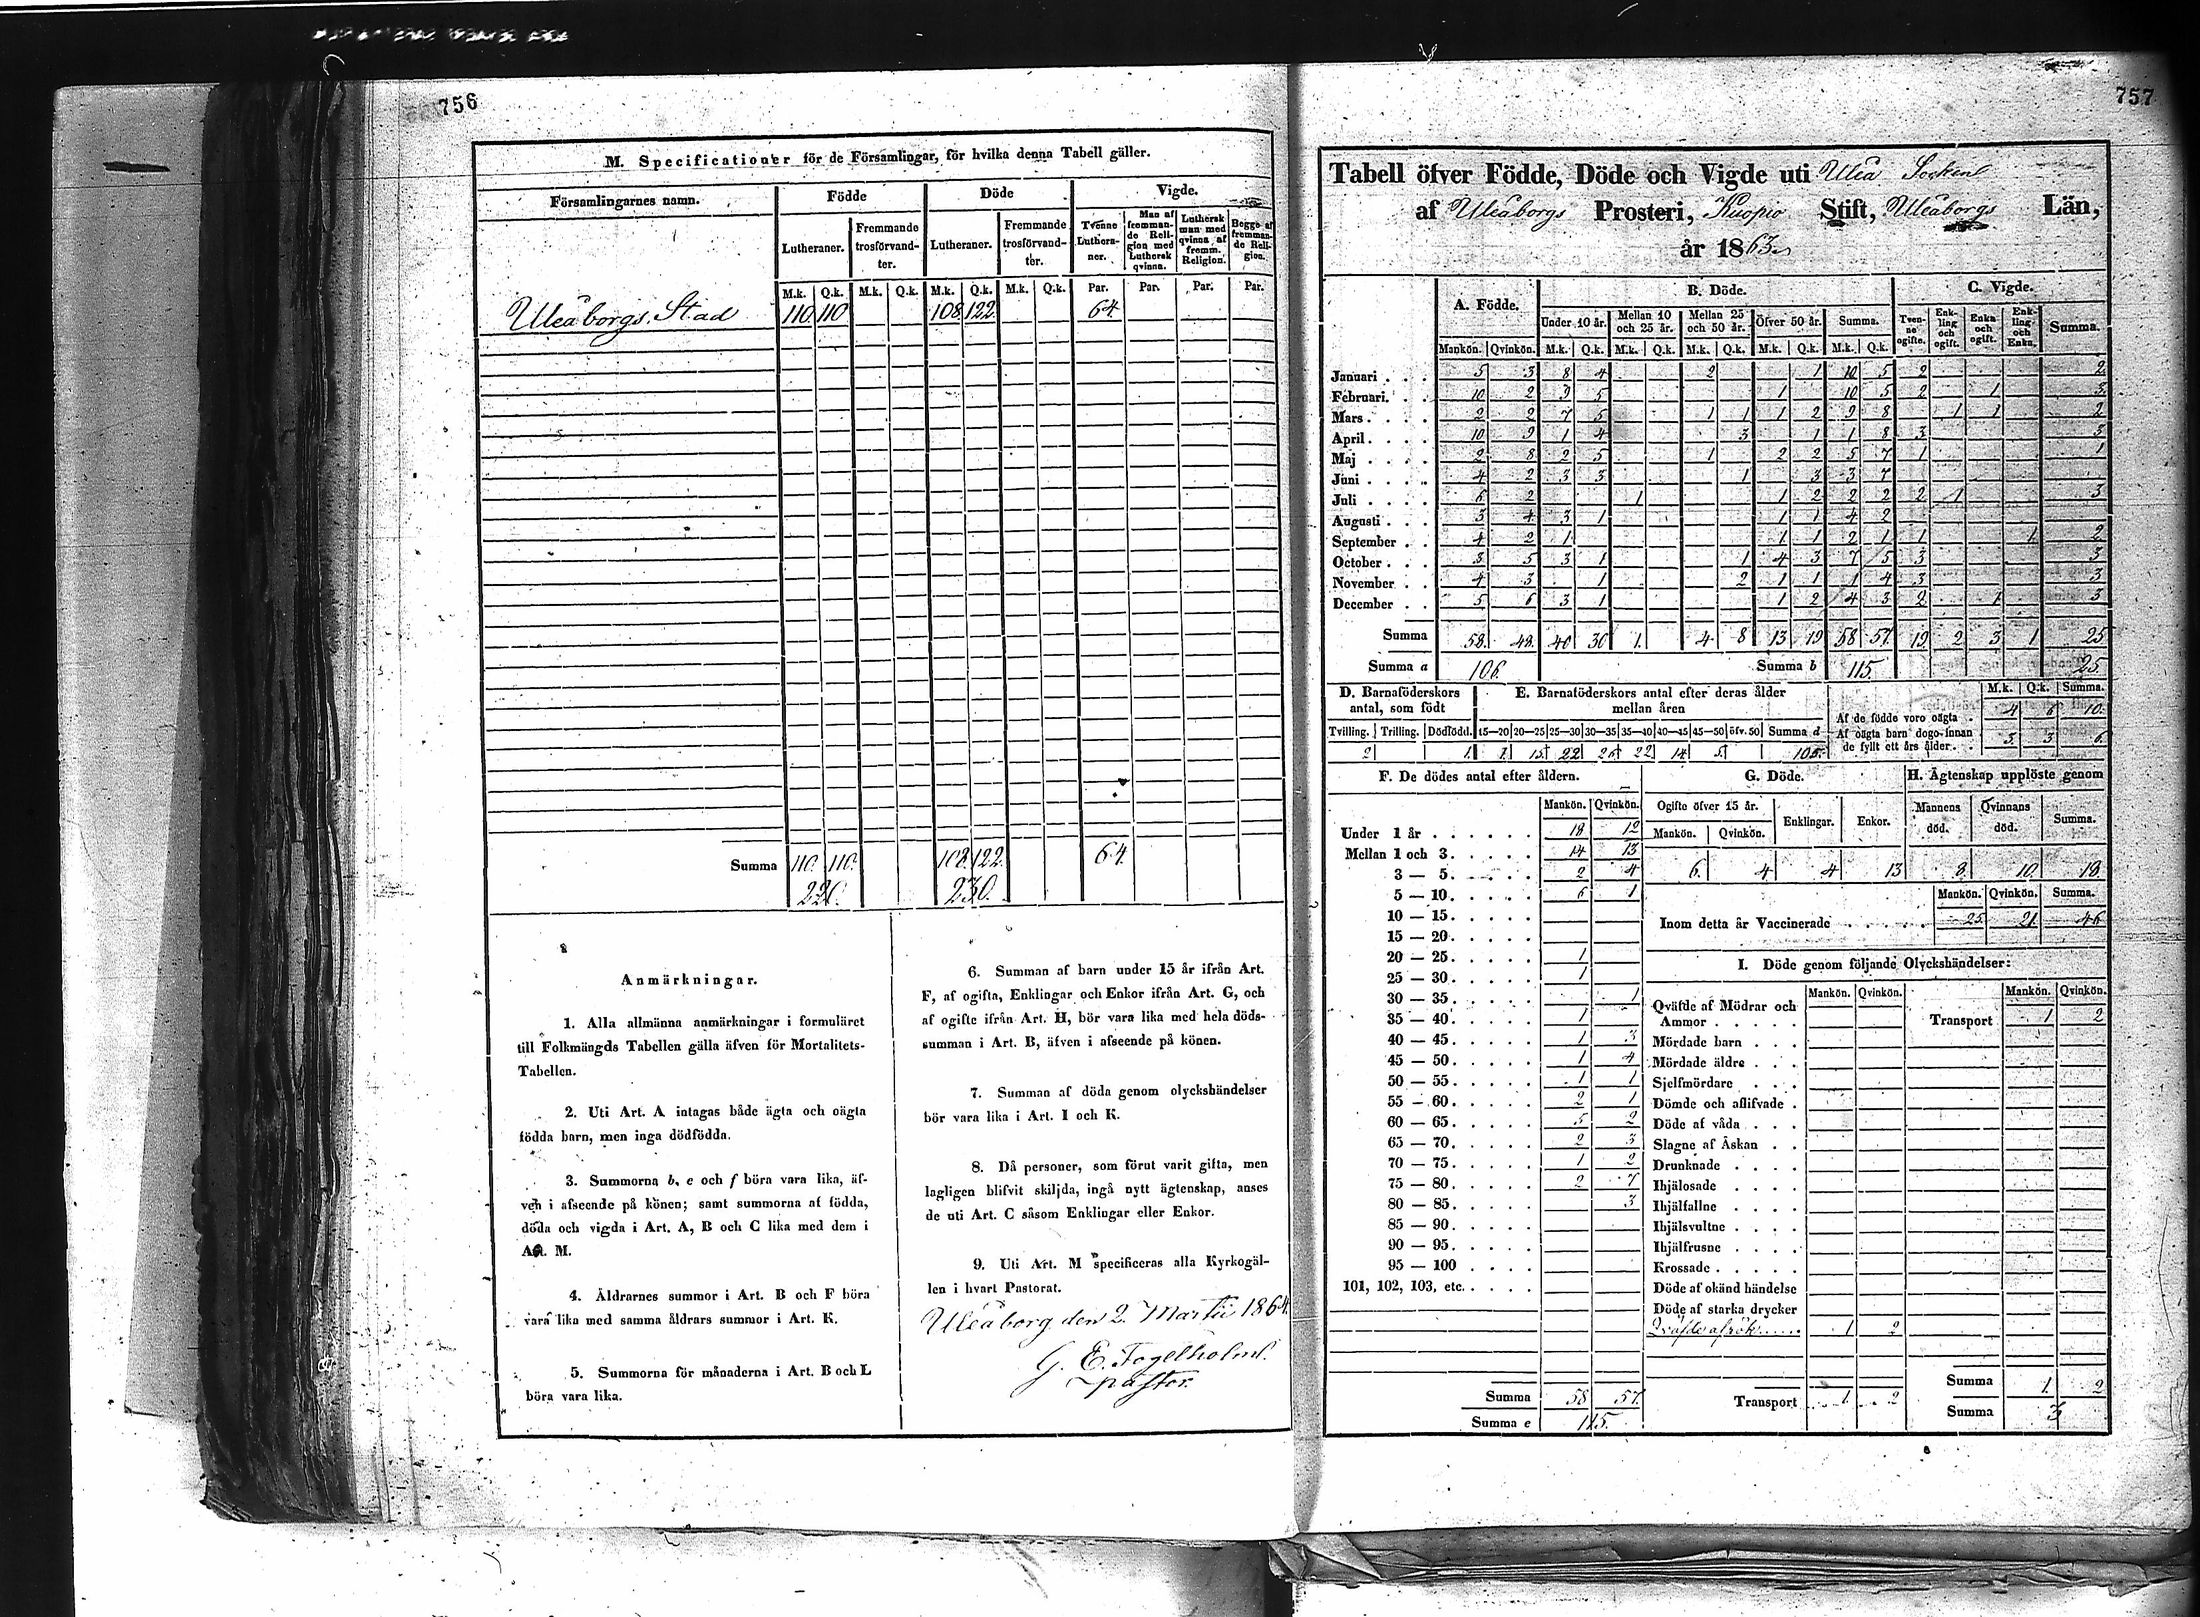 756
M. Specificationer för de Församlingar, för hvilka denna Tabell gäller.
Församlingarnes namn. Födde Döde Vigde.
Lutheraner. Fremmande trosförvandter. Lutheraner. Fremmande trosförvandter. Tvenne Lutheraner. Man af fremmande Religion med Luthersk qvinna. Luthersk man med qvinna af fremm. Religion. Begge af fremmande Religion.
M.k. Q.k. M.k. Q.k. M.k. Q.k. M.k. Q.k. Par. Par. Par. Par.
Uleåborgs Stad 110 110 108 122 64
Summa 110. 110. 108. 122. 64.
220. 230.
Anmärkningar.
1. Alla allmänna anmärkningar i formuläret
till Folkmängds Tabellen gälla äfven för Mortalitets-
Tabellen.
2. Uti Art. A intagas både ägta och oägta
födda barn, men inga dödfödda.
3. Summorna b, e och f böra vara lika, äf-
ven i afseende på könen; samt summorna af födda,
döda och vigda i Art. A, B och C lika med dem i
Art. M.
4. Åldrarnes summor i Art. B och F böra
vara lika med samma åldrars summor i Art. K.
5. Summorna för månaderna i Art. B och L
böra vara lika.
6. Summan af barn under 15 år ifrån Art.
F, af ogifta, Enklingar och Enkor ifrån Art. G, och
af ogifte ifrån Art. H, bör vara lika med hela döds-
summan i Art. B, äfven i afseende på könen.
7. Summan af döda genom olyckshändelser
bör vara lika i Art. I och K.
8. Då personer, som förut varit gifta, men
lagligen blifvit skiljda, ingå nytt ägtenskap, anses
de uti Art. C såsom Enklingar eller Enkor.
9. Uti Art. M specificeras alla Kyrkogäl-
len i hvart Pastorat.
Uleåborg den 2. Martii 1864.
G. E. Fogelholm.
pastor.
757
Tabell öfver Födde, Döde och Vigde uti Uleå Socken
af Uleåborgs Prosteri, Kuopio Stift, Uleåborgs Län,
år 1863
A. Födde. B. Döde. C. Vigde.
Under 10 år. Mellan 10 och 25 år. Mellan 25 och 50 år. Öfver 50 år. Summa. Tvenne ogifte. Enkling och ogift. Enka och ogift. Enkling och Enka. Summa.
Mankön. Qvinkön. M.k. Q.k. M.k. Q.k. M.k. Q.k. M.k. Q.k. M.k. Q.k.
Januari . . . 5 3 8 4 2 1 10 5 2 2
Februari. . . 10 2 9 5 1 10 5 2 1 3
Mars . . . . 2 2 7 5 1 1 1 2 9 8 1 1 2
April . . . . 10 9 1 4 3 1 1 8 3 3
Maj . . . . 2 8 2 5 1 2 2 5 7 1 1
Juni . . . . 4 2 3 3 1 3 3 7
Juli . . . . 6 2 1 1 2 2 2 2 1 3
Augusti . . . 3 4 3 1 1 1 4 2
September . . 4 2 1 1 1 2 1 1 1 2
October . . . 3 5 3 1 1 4 3 7 5 3 3
November . . 4 3 1 2 1 1 1 4 3 3
December . . 5 6 3 1 1 2 4 3 2 1 3
Summa 58. 48. 40 30 1. 4 8 13 19 58 57 19. 2 3 1 25
Summa a 106. Summa b 115. 25.
D. Barnaföderskors antal, som födt
E. Barnaföderskors antal efter deras ålder mellan åren
M.k. Q.k. Summa.
Tvilling. Trilling. Dödfödd. 15—20 20—25 25—30 30—35 35—40 40—45 45—50 öfv. 50 Summa d
2 1. 1. 15 22 26 22 14 5 105.
Af de födde voro oägta . 4 6 10.
Af oägta barn dogo innan de fyllt ett års ålder . . 3 3 6.
F. De dödes antal efter åldern.
Mankön. Qvinkön.
Under 1 år . . . . . . 18 12
Mellan 1 och 3. . . . . 14 13
3 — 5. . . . . 2 4
5 — 10. . . . . 6 1
10 — 15. . . . .
15 — 20. . . . .
20 — 25. . . . . 1
25 — 30. . . . . 1
30 — 35. . . . . 1
35 — 40. . . . . 1
40 — 45. . . . . 1 3
45 — 50. . . . . 1 4
50 — 55. . . . . 1 1
55 — 60. . . . . 2 1
60 — 65. . . . . 5 2
65 — 70. . . . . 2 3
70 — 75. . . . . 1 2
75 — 80. . . . . 2 7
80 — 85. . . . . 3
85 — 90. . . . .
90 — 95. . . . .
95 — 100 . . . .
101, 102, 103, etc. . . . .
Summa 58 57.
Summa e 115.
G. Döde. H. Ägtenskap upplöste genom
Ogifte öfver 15 år. Enklingar. Enkor. Mannens död. Qvinnans död. Summa.
Mankön. Qvinkön.
6. 4 4 13 8. 10. 18.
Mankön. Qvinkön. Summa.
Inom detta år Vaccinerade . . . . . . 25. 21. 46
I. Döde genom följande Olyckshändelser:
Mankön. Qvinkön. Mankön. Qvinkön.
Qväfde af Mödrar och
Ammor . . . . . Transport 1 2
Mördade barn . . .
Mördade äldre . . .
Sjelfmördare . . .
Dömde och aflifvade .
Döde af våda . . .
Slagne af Åskan . .
Drunknade . . . .
Ihjälosade . . . .
Ihjälfallne . . . .
Ihjälsvultne . . . .
Ihjälfrusne . . . .
Krossade . . . . .
Döde af okänd händelse
Döde af starka drycker
Qväfde af rök . . . . 1 2
Transport 1. 2
Summa 1. 2
Summa 3